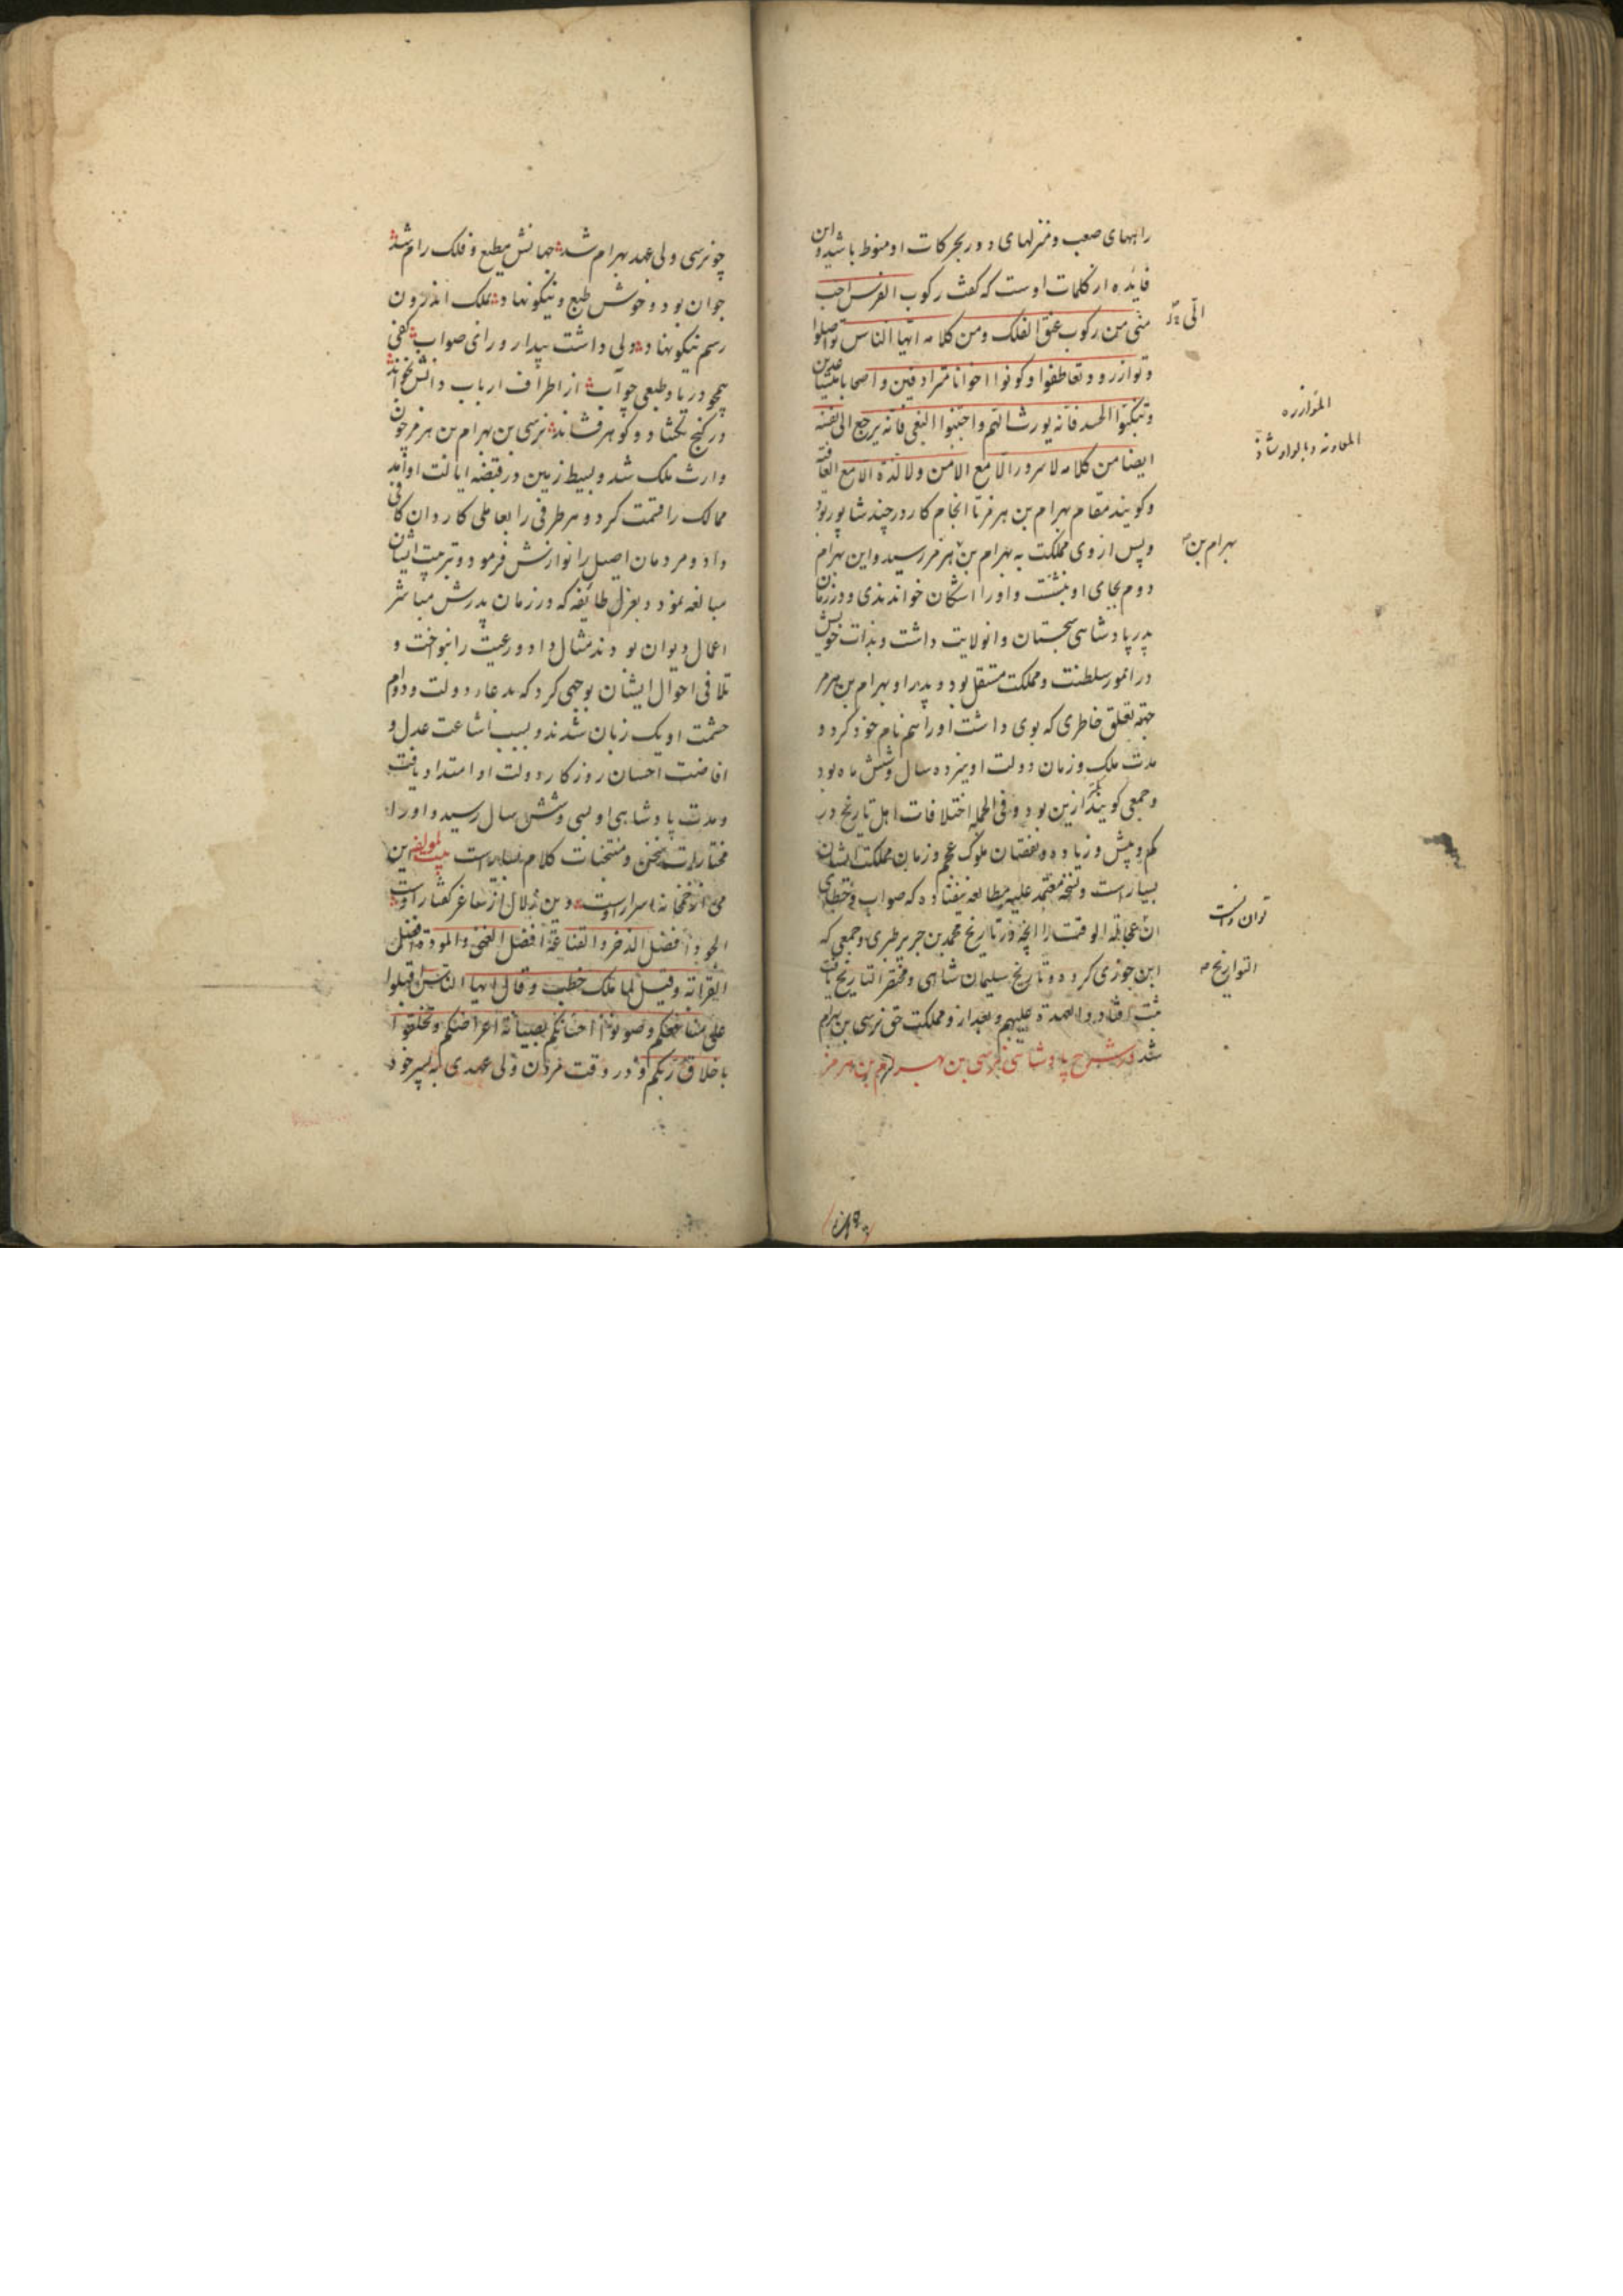 راههای صعب و منزلهای دور بحرکات او منوط باشد و این
فایده از کلمات اوست که گفت رکوب الفرس احب
منی من رکوب عنق الفلک ومن کلامه ایها الناس تواصلوا
وتوازروو وتعاطفوا وکونوا اخوانا مترادفین واصحابا
وتنکبوا الحسد فانه یورث واجتنبوا البغی فانه یرجع الی نفسه
ایضا من کلامه لا سرور الا مع الامن ولا لذة الا مع العافیة
وکویند مقام بهرام بن هرمز تا انجام کار در چند شاپور بود
وپس از وی مملکت به بهرام بن هرمز رسید واین بهرام
دوم بجای او بنشست واورا خواندندی و در زمان
پدر پادشاهی سجستان وانولایت داشت وبذات خویش
در امور سلطنت ومملکت مستقل بود و پدر او بهرام بن هرمز
جهة تعلق خاطری که بوی داشت اورا هم نام خود کرد و
مدت ملک وزمان دولت او سال وشش ماه بود
وجمعی کویند ازین بود و فی الجمله اختلافات اهل تاریخ در
کم وبیش و زیاده و نقصان ملوک عجم وزمان مملکت ایشان
بسیارست ونسخه معتمد علیه بمطالعه نیفتاده که صواب وخطای
ان عجالة الوقت را انچه در تاریخ محمد بن جریر طبری وجمعی که
ابن جوزی کرده و تاریخ سلیمان شاهی ومختصر التاریخ یافت
ثبت افتاد والعهدة علیهم وبعد ازو مملکت حق نرسی بن بهرام
شد در شرح پادشاهی نرسی بن بهرام بن هرمز
الی
الموازره
المعاونه
بهرام بن
توان دانست
التواریخ
چو نرسی ولی عهد بهرام شد جهانش مطیع و فلک رام شد
جوان بود و خوش طبع و نیکونهاد بملک اندرون
رسم نیکو نهاد ولی داشت بیدار و رای صواب کفی
همچو دریا و طبعی چو آب از اطراف ارباب دانش بخواند
در کنج بکشاد و کوهر فشاند نرسی بن بهرام بن هرمز چون
وارث ملک شد وبسیط زمین در قبضه ایالت او آمد
ممالک را قسمت کرد و هر طرفی را بعاملی کاردان کافی
داد ومردمان اصیل را نوازش فرمود و تربیت ایشان
مبالغه نمود وبعزل طائفه که در زمان پدرش مباشر
اعمال دیوان بودند مثال داد ورعیت را بنواخت و
تلافی احوال ایشان بوجهی کرد که بدعاء دولت ودوام
حشمت او یک زبان شدند وبسبب اشاعت عدل و
افاضت احسان روزکار دولت او امتداد یافت
ومدت پادشاهی او بسی وشش سال رسید واورا
مختارات سخن ومنتخبات کلام بسیارست بیت لمولفه این
می از خمخانه اسرار اوست وین زلال از ساغر کفتار اوست
الجود افضل الذخر والقناعة افضل الغنی والمودة افضل
القرابة وقیل لما ملک خطب وقال ایها الناس اقبلوا
علی وصونوا بصیانة اعراضکم وتخلقوا
باخلاق ربکم و در وقت مردن ولی عهدی به پسر خود